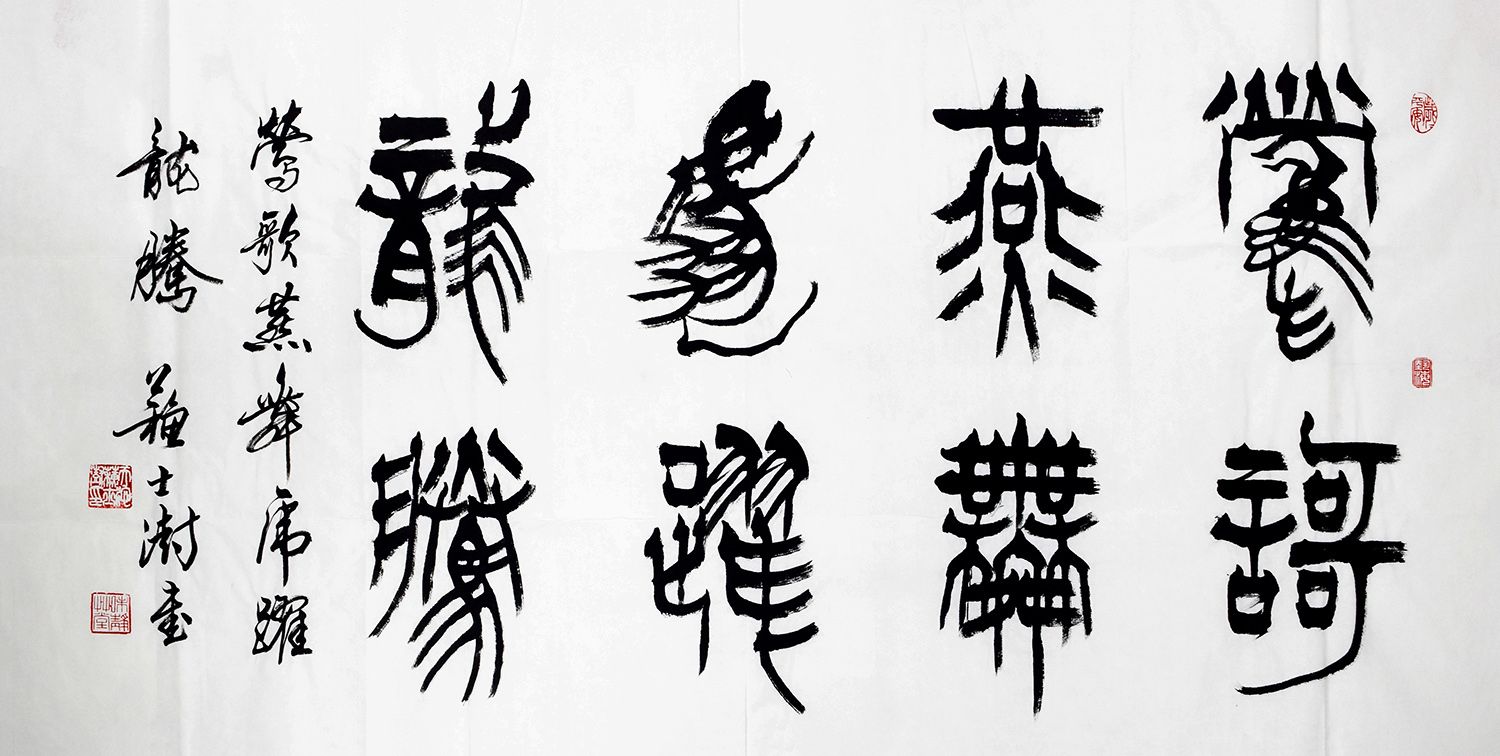 鶯謌
燕舞
虎躍
龍騰
鶯歌燕舞虎躍
龍騰 蘇士澍書